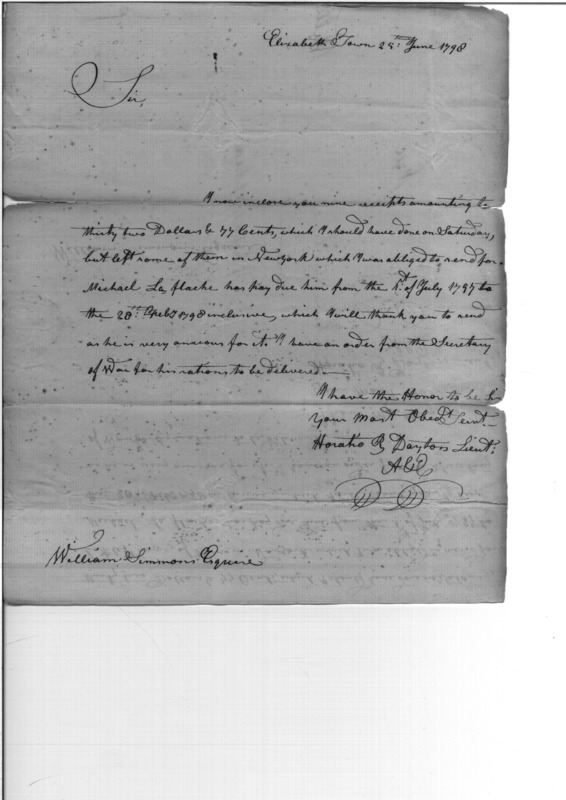 Elizabeth Town 25th June 1798
Sir,
I now inclose you nine receipts amounting to
thirty two Dollars & 77 Cents, which I should have done on Saturday,
but left some of them in Newyork which I was obliged to send for.
Michael La placke has pay due him from the 1st of July 1797 to
the 28th Feby 1798 inclusive, which I will thank you to send
as he is very anxious for it. I have an order from the Secretary
of War for his rations to be delivered.—
I have the Honor to be Sr
your most Obedt Servt
Horatio R Dayton Lieut:
A&E
William Simmons Esquire